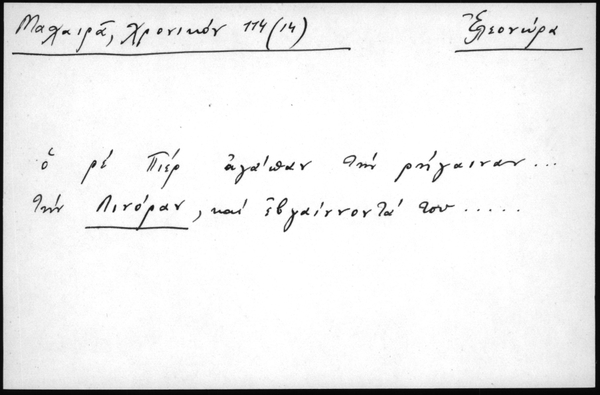 Μαχαιρᾶ, Χρονικόν 114 (14)
Ἐλεονώρα
ὁ ρέ Πιέρ ἀγάπαν τήν ρήγαιναν ...
τήν Λινόραν, καί ἐβγαίννοντά του .....